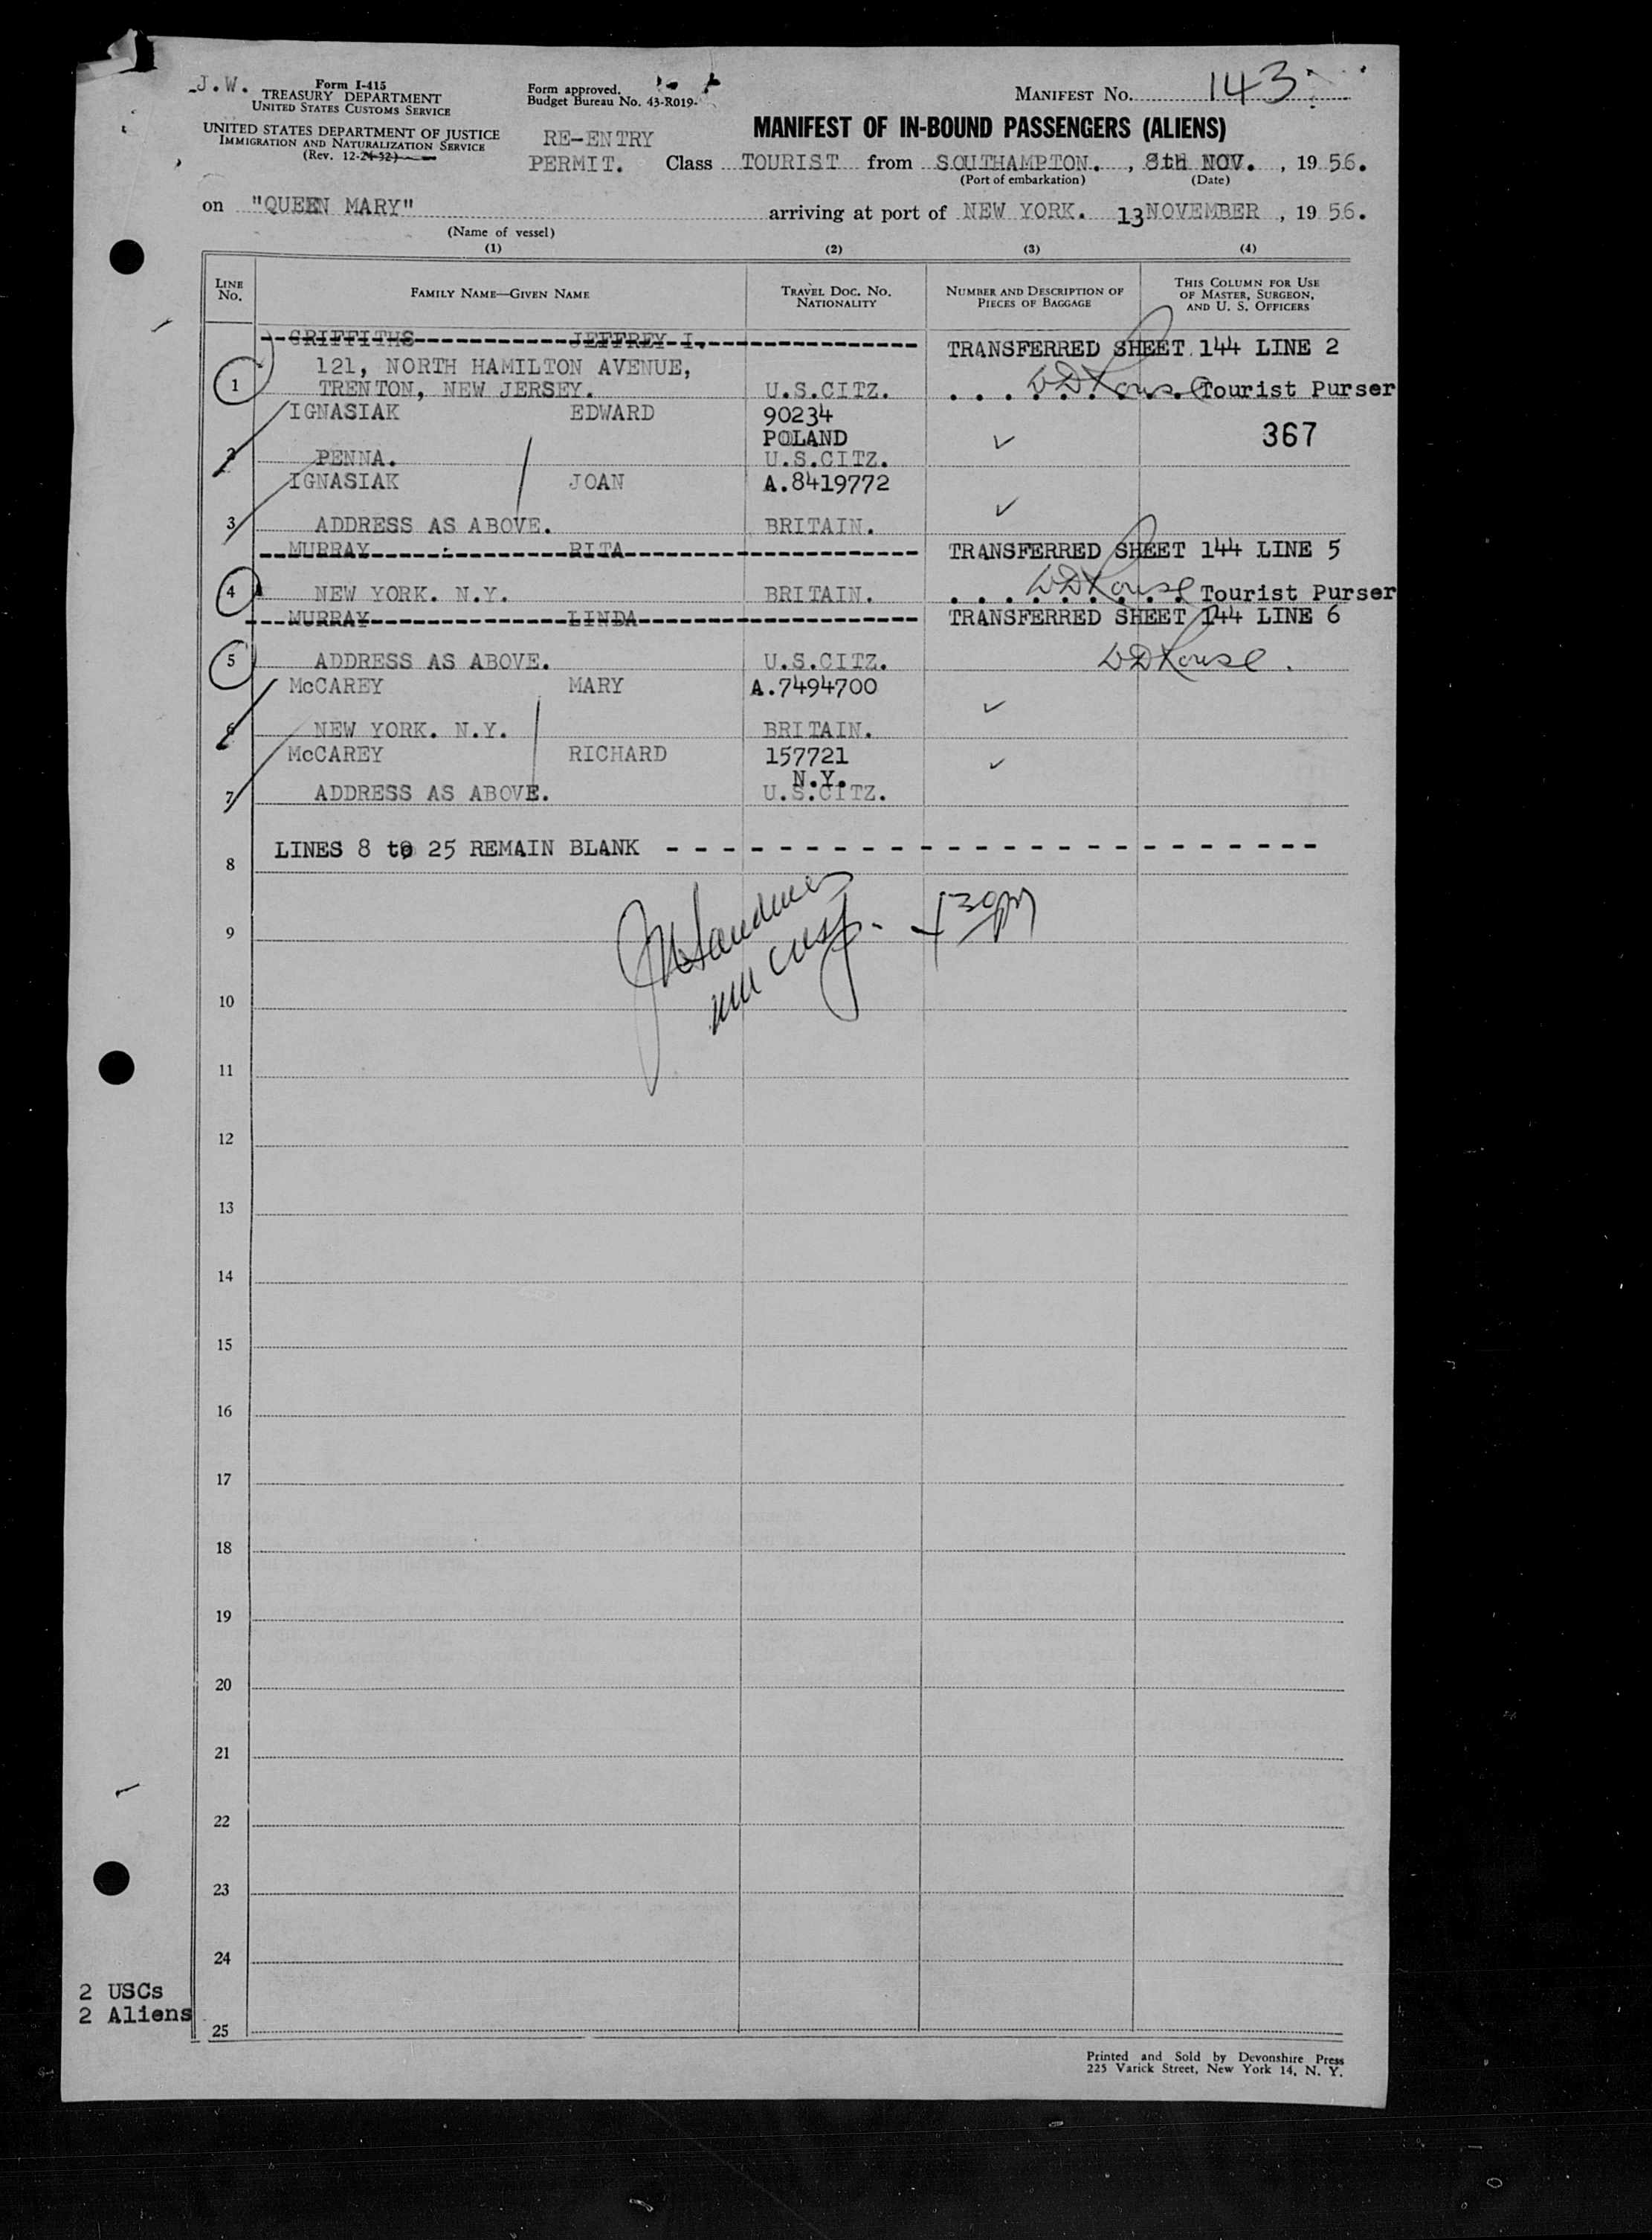 J.W.
Form I-415
TREASURY DEPARTMENT
UNITED STATES CUSTOMS SERVICE
UNITED STATES DEPARTMENT OF JUSTICE
IMMIGRATION AND NATURALIZATION SERVICE
(Rev. 12-24-52)
Form approved.
Budget Bureau No. 43-R019-
RE-ENTRY
PERMIT.
MANIFEST No. 143
MANIFEST OF IN-BOUND PASSENGERS (ALIENS)
Class TOURIST from SOUTHAMPTON. , 8th NOV. , 1956.
(Port of embarkation) (Date)
on "QUEEN MARY" arriving at port of NEW YORK. 13 NOVEMBER , 1956.
(Name of vessel)
(1) (2) (3) (4)
LINE No. FAMILY NAME—GIVEN NAME TRAVEL DOC. NO. NATIONALITY NUMBER AND DESCRIPTION OF PIECES OF BAGGAGE THIS COLUMN FOR USE OF MASTER, SURGEON, AND U. S. OFFICERS
GRIFFITHS JEFFREY I. TRANSFERRED SHEET 144 LINE 2
121, NORTH HAMILTON AVENUE,
1 TRENTON, NEW JERSEY. U.S.CITZ. Tourist Purser
IGNASIAK EDWARD 90234
POLAND 367
2 PENNA. U.S.CITZ.
IGNASIAK JOAN A.8419772
3 ADDRESS AS ABOVE. BRITAIN.
MURRAY RITA TRANSFERRED SHEET 144 LINE 5
4 NEW YORK. N.Y. BRITAIN. Tourist Purser
MURRAY LINDA TRANSFERRED SHEET 144 LINE 6
5 ADDRESS AS ABOVE. U.S.CITZ.
McCAREY MARY A.7494700
6 NEW YORK. N.Y. BRITAIN.
McCAREY RICHARD 157721
N.Y.
7 ADDRESS AS ABOVE. U.S.CITZ.
LINES 8 to 25 REMAIN BLANK - - - - - - - - - - - - - - - - - - - - - - -
8
9
10
11
12
13
14
15
16
17
18
19
20
21
22
23
24
2 USCs
2 Aliens
25
Printed and Sold by Devonshire Press
225 Varick Street, New York 14, N. Y.